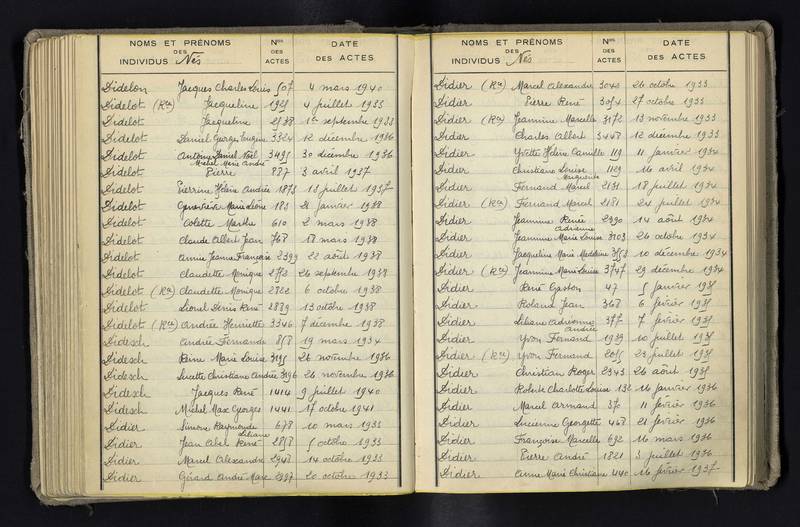 NOMS ET PRÉNOMS
DES
INDIVIDUS Nés
Nos
DES
ACTES
DATE
DES ACTES
Didelon Jacques Charles Louis 507 4 mars 1940
Didelot (Rn) Jacqueline 1921 4 juillet 1933
Didelot Jacqueline 2538 1er septembre 1933
Didelot Daniel Georges Eugène 3324 12 décembre 1936
Didelot Antoine Daniel Noël 3495 30 décembre 1936
Michel Marie André
Didelot Pierre 887 3 avril 1937
Didelot Pierrine Hélène Andrée 1873 13 juillet 1937
Didelot Geneviève Marie 183 21 janvier 1938
Didelot Colette Marthe 610 2 mars 1938
Didelot Claude Albert Jean 768 18 mars 1938
Didelot Annie Jeanne Françoise 2399 22 août 1938
Didelot Claudette Monique 2772 26 septembre 1938
Didelot (Rn) Claudette Monique 2822 6 octobre 1938
Didelot Lionel Denis René 2889 13 octobre 1938
Didelot (Rn) Andrée Henriette 3346 7 décembre 1938
Didesch Andrée Fernande 858 19 mars 1934
Didesch Marie Louise 3195 26 novembre 1936
Didesch Lucette Christiane Andrée 3196 26 novembre 1936
Didesch Jacques René 1414 9 juillet 1940
Didesch Michel Max Georges 1441 17 octobre 1941
Didier Simone Raymonde 678 10 mars 1933
Liliane
Didier Jean René 2858 5 octobre 1933
Didier Marcel Alexandre 2948 14 octobre 1933
Didier Gérard André Marc 2997 20 octobre 1933
NOMS ET PRÉNOMS
DES
INDIVIDUS Nés
Nos
DES
ACTES
DATE
DES ACTES
Didier (Rn) Marcel Alexandre 3040 26 octobre 1933
Didier Pierre René 3054 27 octobre 1933
Didier (Rn) Jeannine Marcelle 3172 13 novembre 1933
Didier Charles Albert 3448 12 décembre 1933
Didier Yvette Hélène Camille 119 11 janvier 1934
Didier Christiane Louise 1129 16 avril 1934
Marguerite
Didier Fernand Marcel 2131 18 juillet 1934
Didier (Rn) Fernand Marcel 2181 24 juillet 1934
Didier Jeannine Renée 2390 14 août 1934
Adrienne
Didier Jeannine Marie Louise 3103 26 octobre 1934
Didier Jacqueline Marie Madeleine 3553 10 décembre 1934
Didier (Rn) Jeannine Marie Louise 3747 29 décembre 1934
Didier René Gaston 47 5 janvier 1935
Didier Roland Jean 368 6 février 1935
Didier Liliane Adrienne 377 7 février 1935
Andrée
Didier Yvon Fernand 1939 10 juillet 1935
Didier (Rn) Yvon Fernand 2055 23 juillet 1935
Didier Christian Roger 2343 26 août 1935
Didier Charlotte Louise 132 16 janvier 1936
Didier Marcel Armand 370 11 février 1936
Didier Lucienne Georgette 468 21 février 1936
Didier Françoise Marcelle 692 16 mars 1936
Didier Pierre André 1821 3 juillet 1936
Didier Anne Marie Christiane 440 16 février 1937